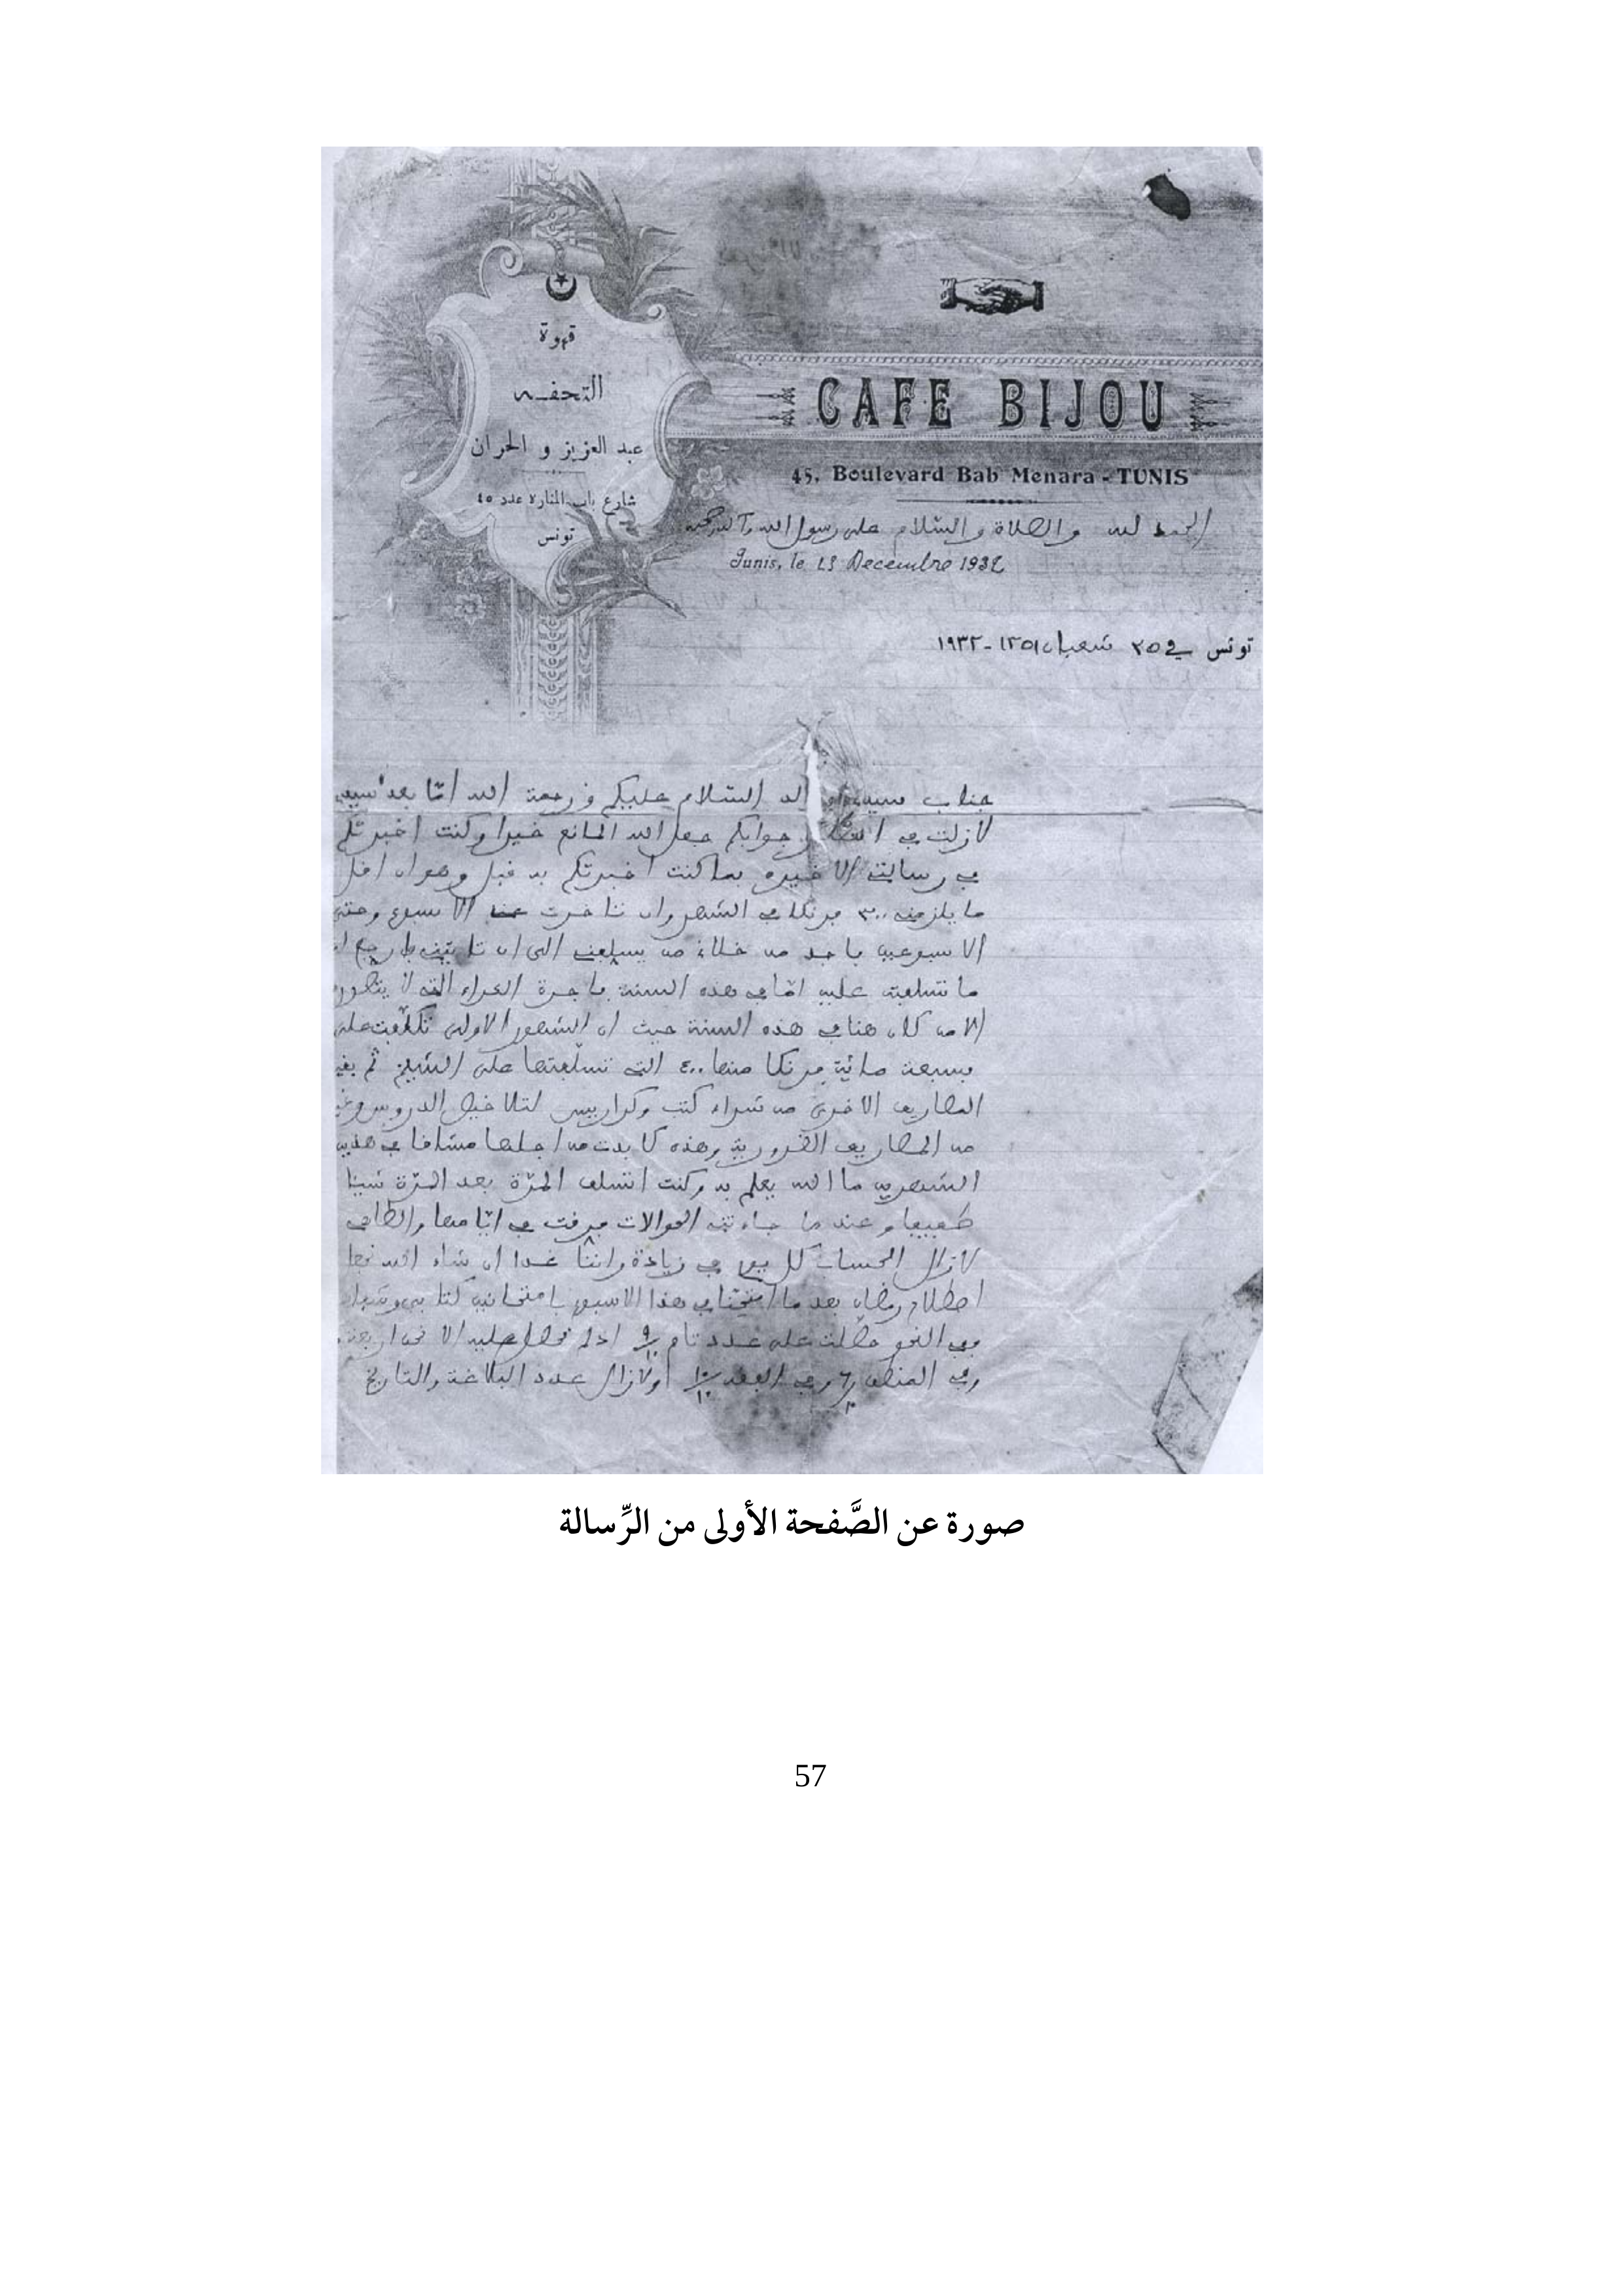 قهوة
التحفة
عبد العزيز و الحران
شارع باب المنارة عدد ٤٥
تونس
CAFE BIJOU
45, Boulevard Bab Menara - TUNIS
الحمد لله والصلاة والسّلام على رسول الله وآله وصحبه
Tunis, le 23 Decembre 1932
تونس في ٢٥ شعبان ١٣٥١ - ١٩٣٢
جناب سيدي الوالد السّلام عليكم ورحمة الله أمّا بعد سيدي
لازلت في انتظار جوابكم جعل الله المانع خيرا وكنت اخبرتكم
في رسالتي الاخيرة بما كنت اخبرتكم به قبل وهو ان اقل
ما يلزمني ٣٠٠ فرنكا في الشهر وان تاخرت الاسبوع وحتى
الاسبوعين فاجد من خلاله من يسلفني الى ان
ما تسلفته عليه امّا في هذه السنة فاجرة الكراء التي لا يتصور
الا من كان هنا في هذه السنة حيث ان الشهور الاولى تكلّفت علي
بسبعة مائية فرنكا منها ٤٠٠ التي تسلفتها على الشيخ ثم بقية
المصاريف الاخرى من شراء كتب وكراريس لتلاخيص الدروس
من المصاريف الضرورية وهذه كابدت من اجلها مشاقا في هذين
الشهرين ما الله يعلم به وكنت اتسلف المرّة بعد المرّة شيئا
طفيفا وعند ما جاءتني الحوالات فرقت في ايّامها
لازال الحساب كل يوم في زيادة واننا غدا ان شاء الله
رمضان بعد ما امتحنّا في هذا الاسبوع بامتحانين كتابي
في النحو حصلت على عدد تام ٩/١٠ اذ لم يحصل عليه الا نحو اربعة
وفي المنطق ٦/١٠ وفي الفقه ١٠/١٠ ولازال عدد البلاغة والتاريخ
صورة عن الصَّفحة الأولى من الرِّسالة
57